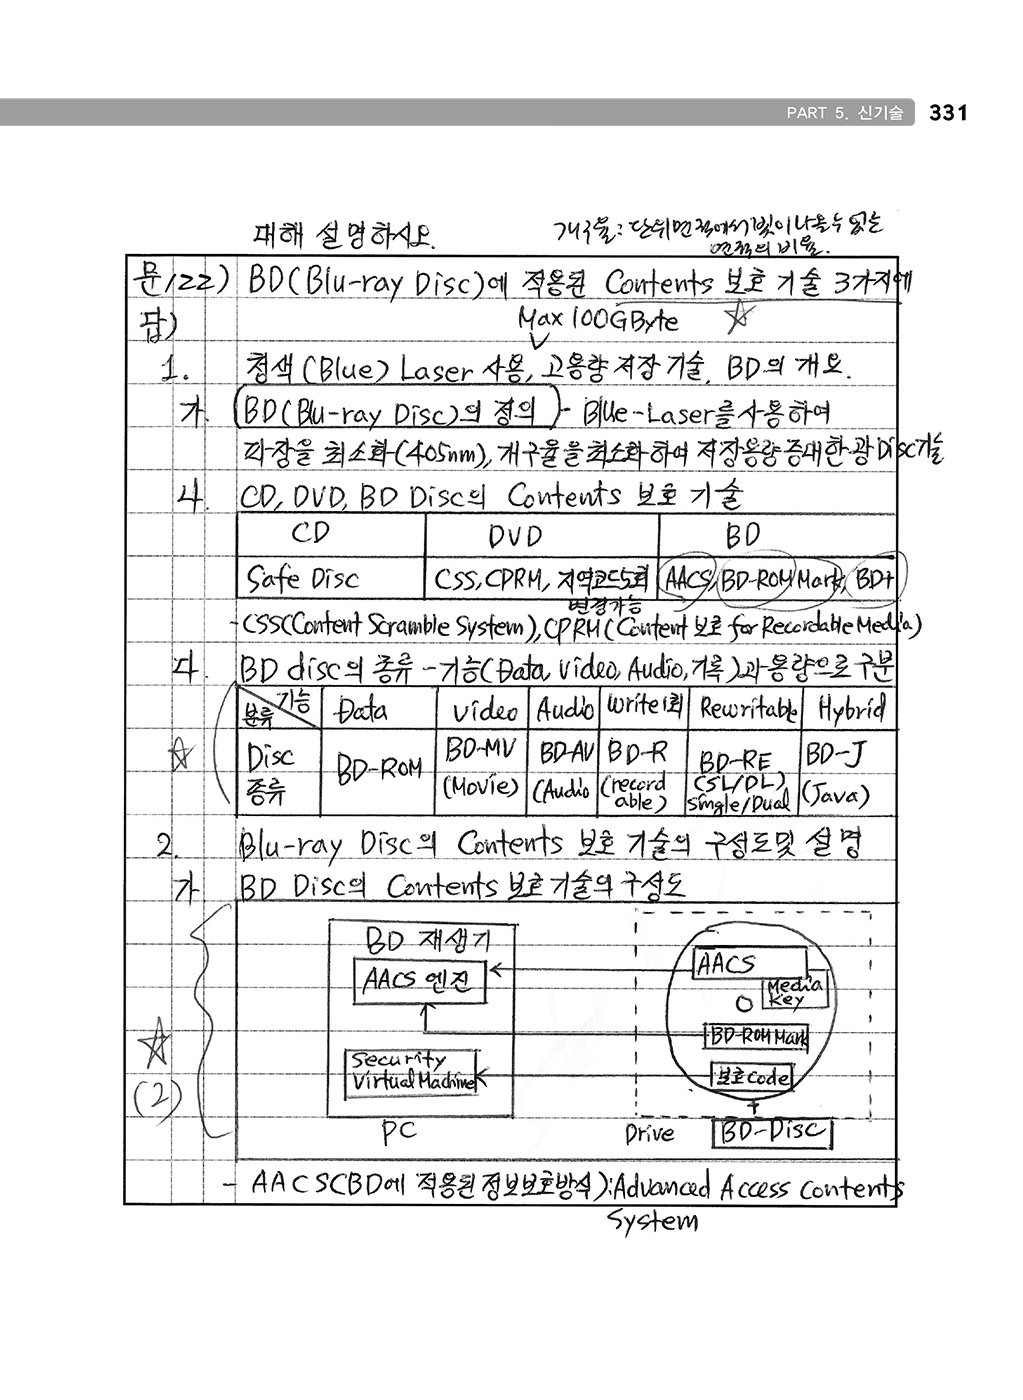 PART 5. 신기술 331
대해 설명하시오.
개구율: 단위면적에서 빛이 나올 수 있는
면적의 비율.
문122) BD(Blu-ray Disc)에 적용된 Contents 보호 기술 3가지에
답)
Max 100GByte
1. 청색(Blue) Laser 사용, 고용량 저장 기술, BD의 개요.
가. BD(Blu-ray Disc)의 정의 - Blue-Laser를 사용하여
파장을 최소화(405nm), 개구율을 최소화하여 저장용량 증대한 광 Disc기술
나. CD, DVD, BD Disc의 Contents 보호 기술
CD DVD BD
Safe Disc CSS, CPRM, 지역코드5회 AACS, BD-ROM Mark, BD+
변경가능
-CSS(Content Scramble System), CPRM(Content 보호 for Recordable Media)
다. BD disc의 종류 - 기능(Data, Video, Audio, 기록)과 용량으로 구분
기능
분류 Data Video Audio Write1회 Rewritable Hybrid
Disc BD-ROM BD-MV BD-AV BD-R BD-RE BD-J
종류 (Movie) (Audio (record (SL/DL) (Java)
able) Single/Dual
2. Blu-ray Disc의 Contents 보호 기술의 구성도 및 설명
가 BD Disc의 Contents 보호기술의 구성도
BD 재생기
AACS
AACS 엔진
Media
Key
BD-ROM Mark
Security
Virtual Machine
보호 Code
(2)
PC
Drive
BD-Disc
- AACSCBD에 적용된 정보보호방식):Advanced Access Contents
System